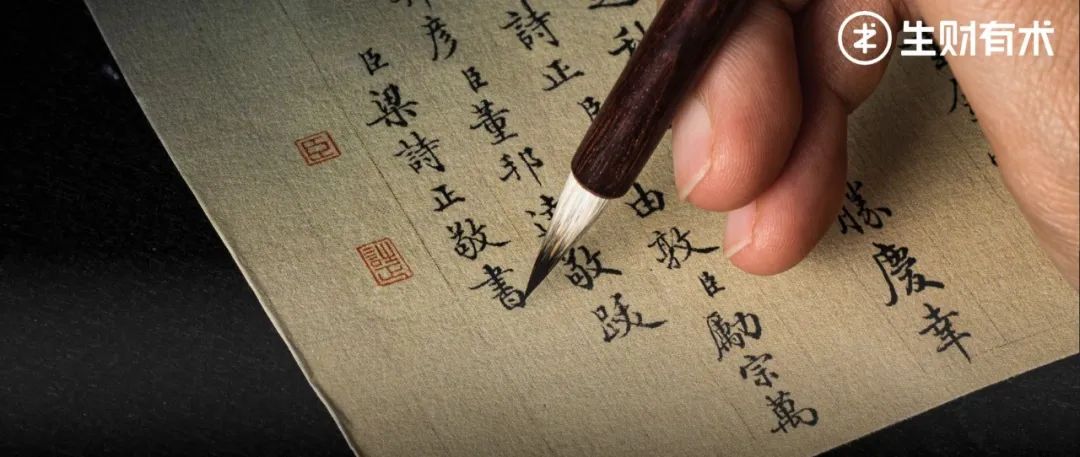 生财有术
勝慶幸
詩正臣由敦臣勵宗萬
彦臣董邦達敬跋
臣梁詩正敬書
臣
詩正